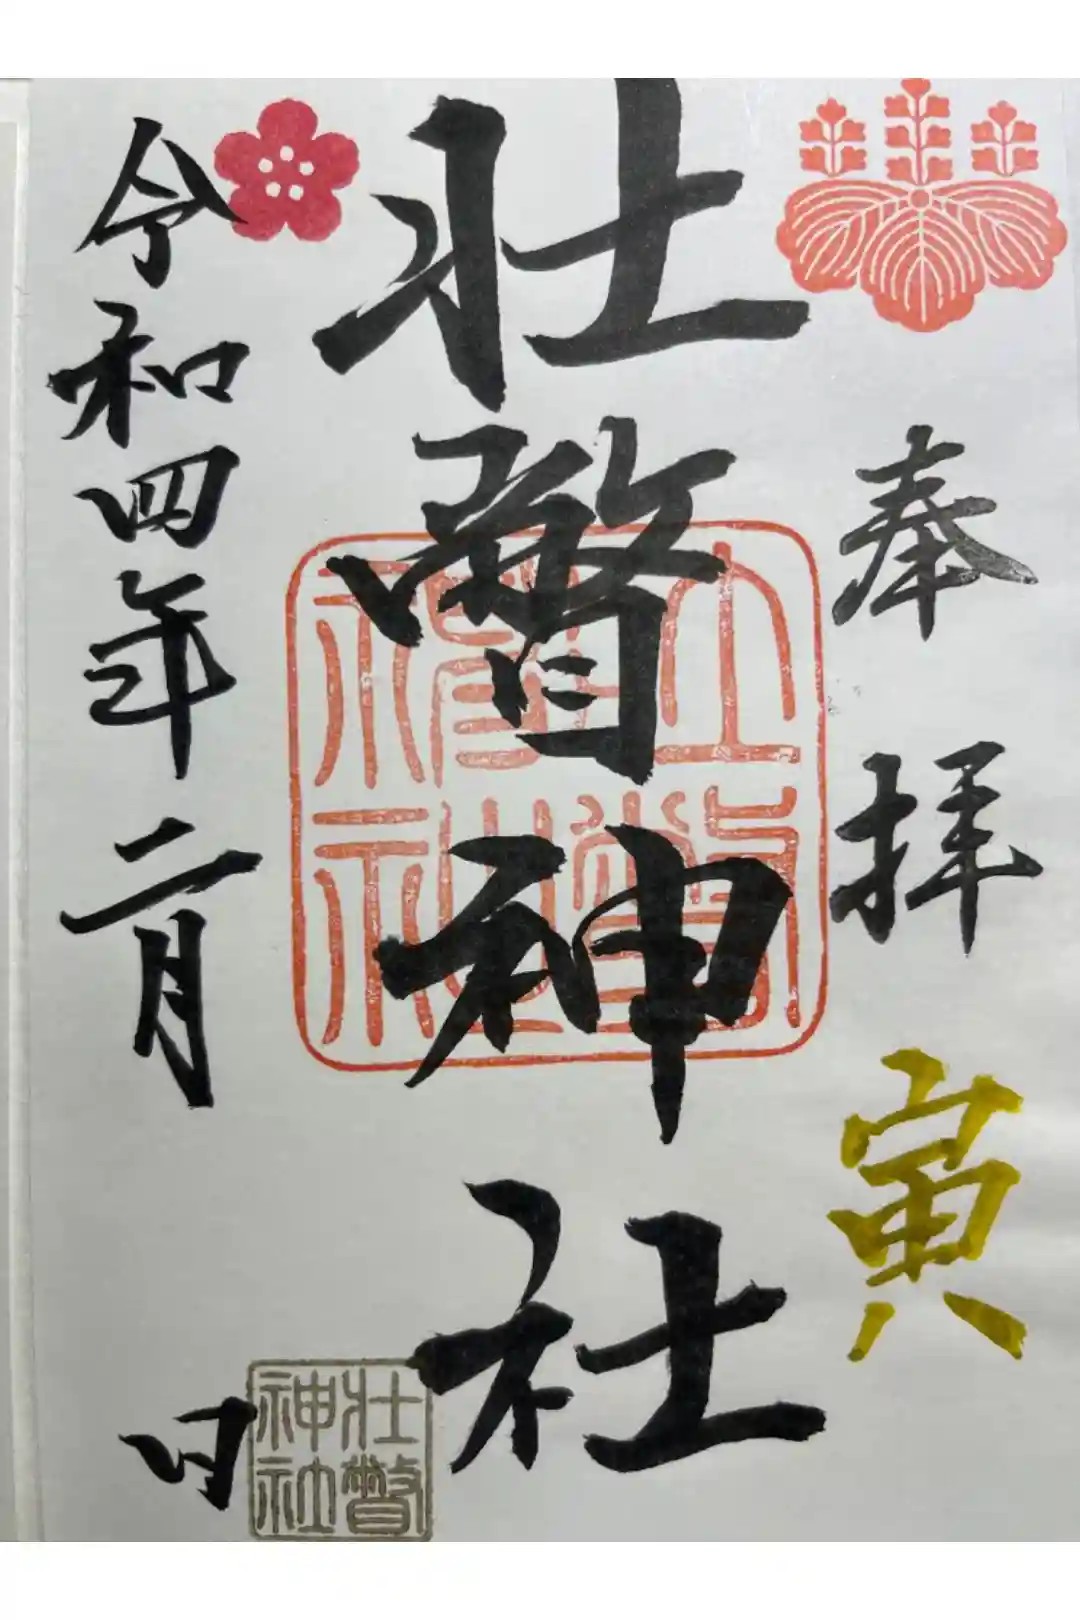 奉拝
寅
壮瞥神社
令和四年二月
日
壮瞥
神社